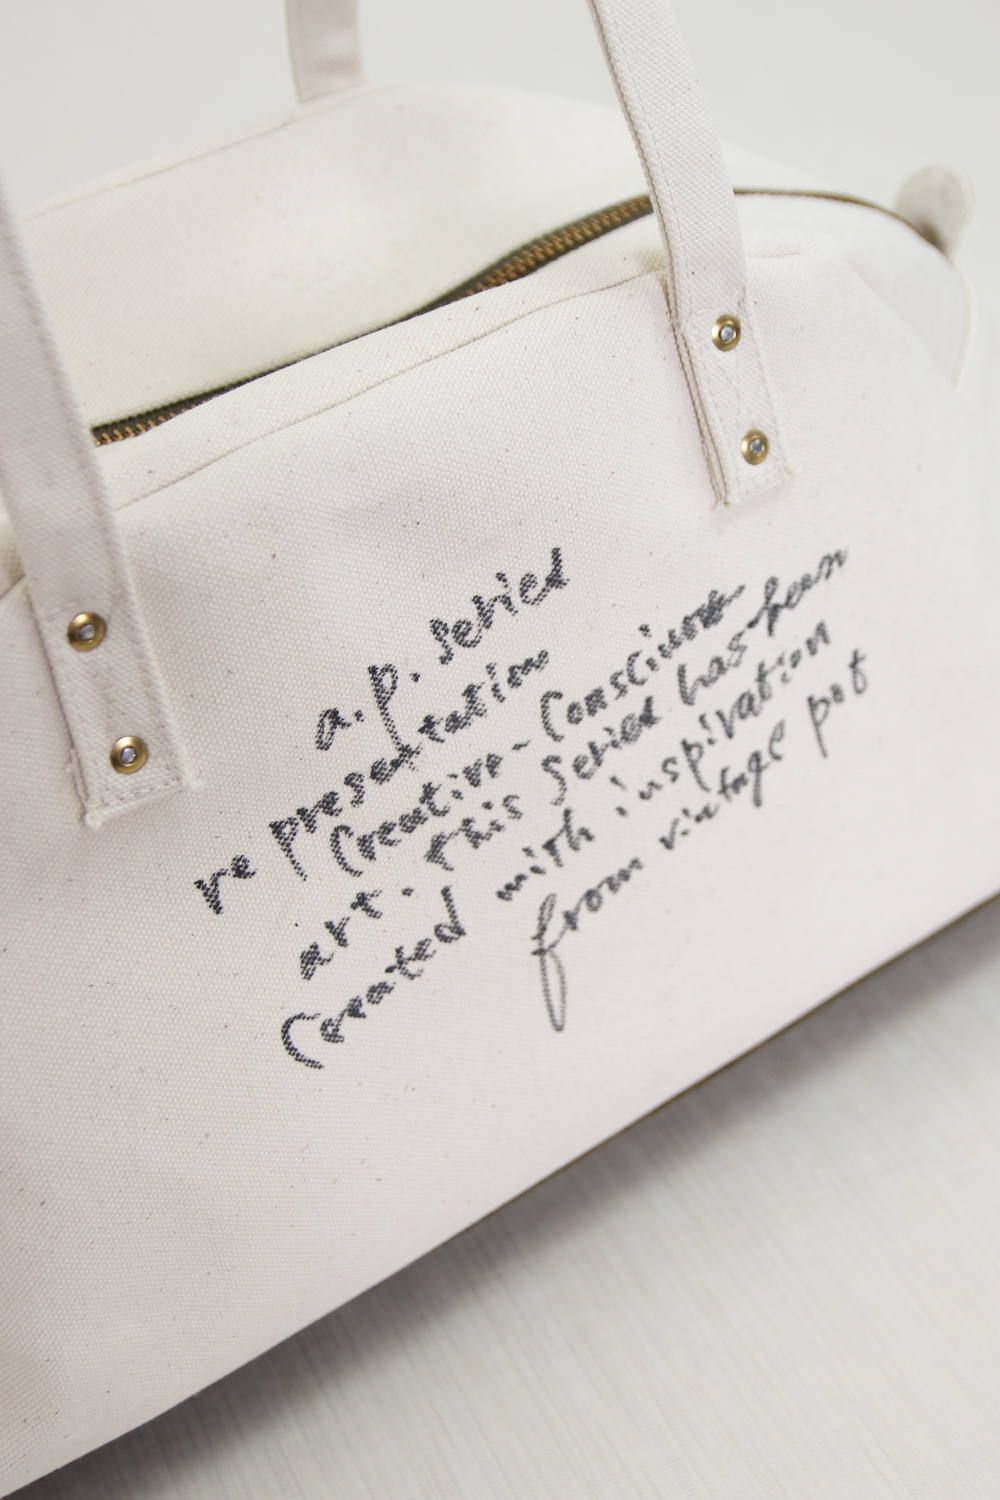 a.p. Series
representation
Creative-Conscious
art. this Series has been
Created with inspiration
from vintage pot